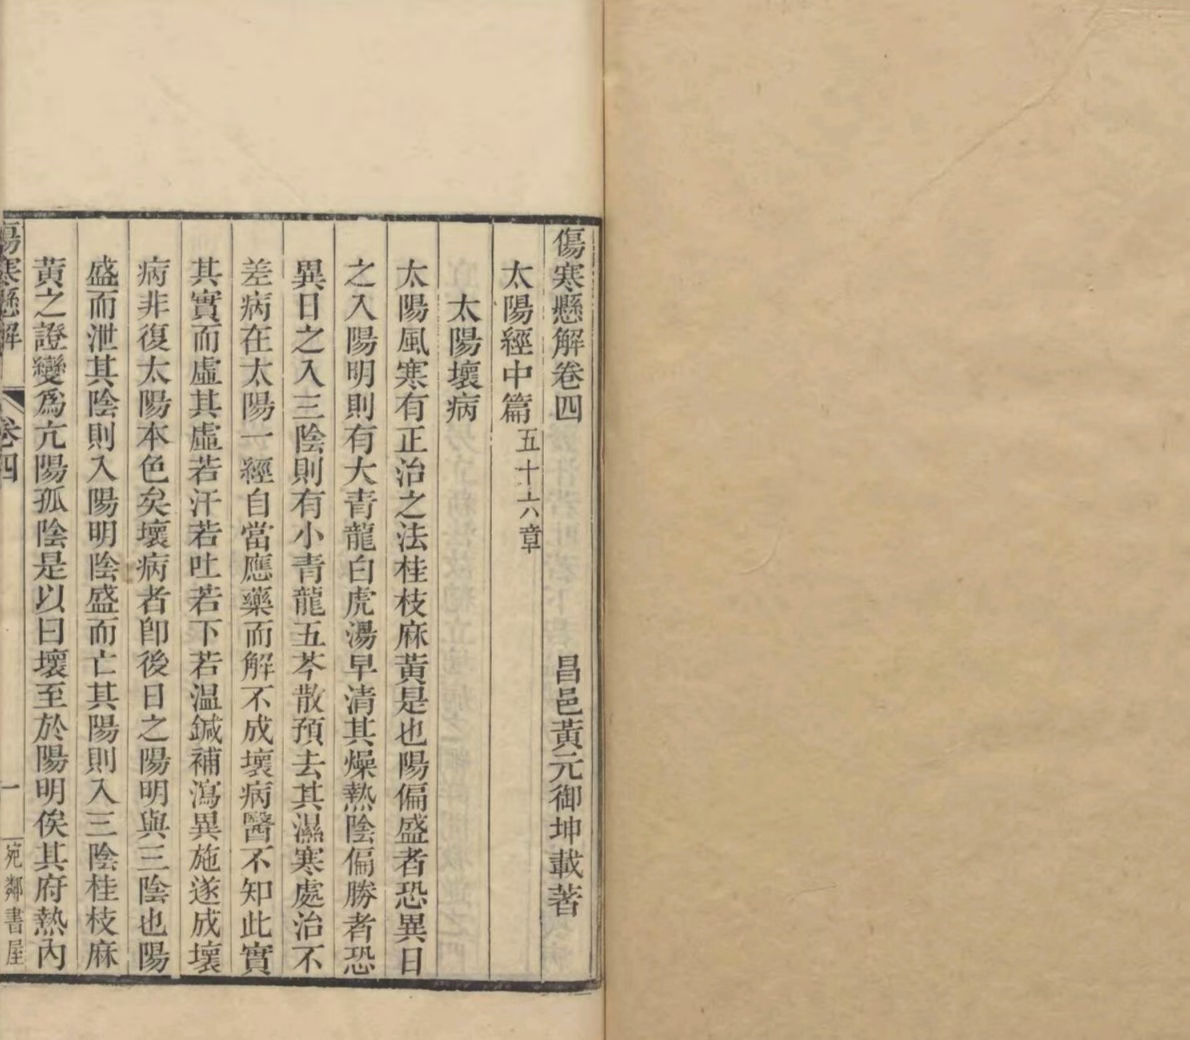 傷寒懸解卷四　昌邑黃元御坤載著
太陽經中篇五十六章
太陽壞病
太陽風寒有正治之法桂枝麻黃是也陽偏盛者恐異日
之入陽明則有大青龍白虎湯早清其燥熱陰偏勝者恐
異日之入三陰則有小青龍五苓散預去其濕寒處治不
差病在太陽一經自當應藥而解不成壞病醫不知此實
其實而虛其虛若汗若吐若下若温鍼補瀉異施遂成壞
病非復太陽本色矣壞病者卽後日之陽明與三陰也陽
盛而泄其陰則入陽明陰盛而亡其陽則入三陰桂枝麻
黃之證變爲亢陽孤陰是以曰壞至於陽明俟其府熱內
傷寒懸解　卷四　一　宛鄰書屋